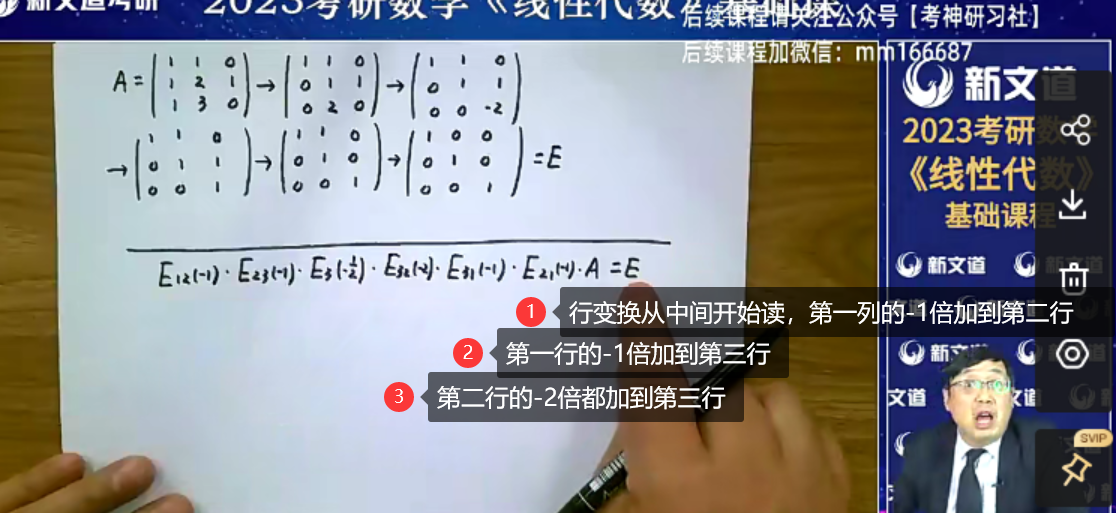 新文道考研
2023考研数学《线性代数》基础课
后续课程请关注公众号【考神研习社】
后续课程加微信：mm166687
A = | 1 1 0 | → | 1 1 0 | → | 1 1 0 |
| 1 2 1 | | 0 1 1 | | 0 1 1 |
| 1 3 0 | | 0 2 0 | | 0 0 -2 |
→ | 1 1 0 | → | 1 1 0 | → | 1 0 0 | = E
| 0 1 1 | | 0 1 0 | | 0 1 0 |
| 0 0 1 | | 0 0 1 | | 0 0 1 |
E12(-1)·E23(-1)·E3(-1/2)·E32(-2)·E31(-1)·E21(-1)·A = E
1 行变换从中间开始读，第一列的-1倍加到第二行
2 第一行的-1倍加到第三行
3 第二行的-2倍都加到第三行
新文道
2023考研数学
《线性代数》
基础课程
新文道
新文
文道
SVIP